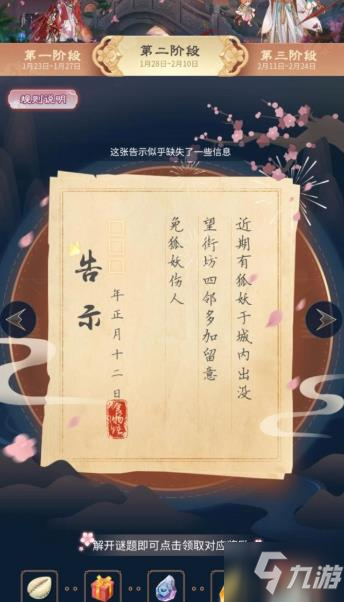 第一阶段
1月23日~1月27日
第二阶段
1月28日~2月10日
第三阶段
2月11日~2月24日
规则说明
这张告示似乎缺失了一些信息
近期有狐妖于城内出没
望街坊四邻多加留意
免狐妖伤人
年正月十二日
告示
解开谜题即可点击领取对应
九游